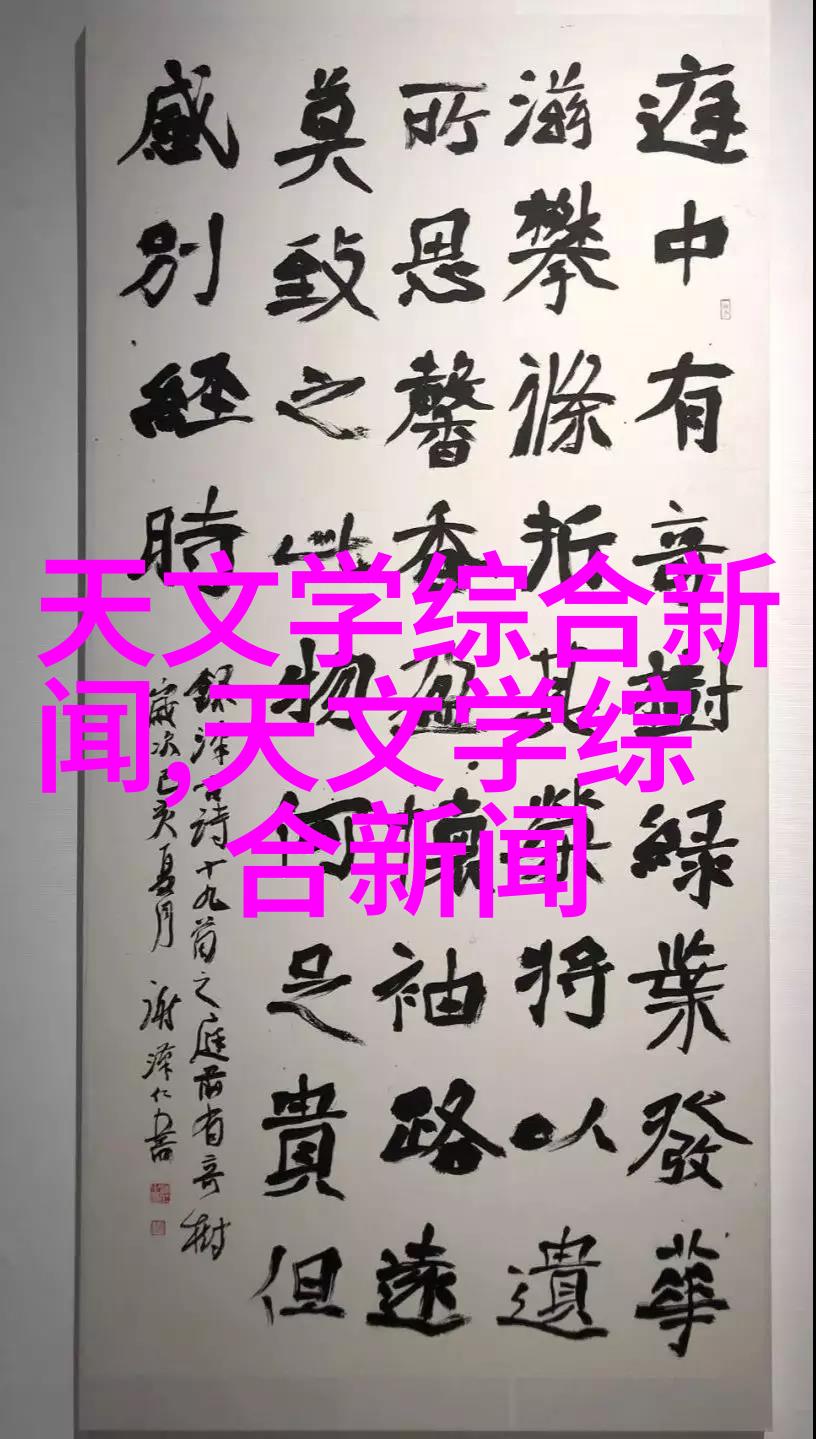 天文学综合新
闻,天文学综
合新闻
庭中有奇樹緑葉發華
滋攀條折其榮將以遺
所思馨香盈懷袖路遠
莫致之此物何足貴但
感別經時
録漢古詩十九首之庭前有奇樹
歲次己亥夏月 謝澤仁書